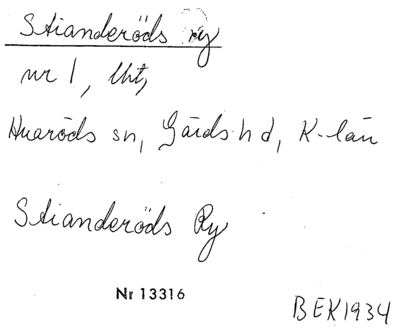 Stianderöds ry
nr 1, Uht,
Huaröds sn, Gärds hd, K-län
Stianderöds Ry
Nr 13316
BEK1934